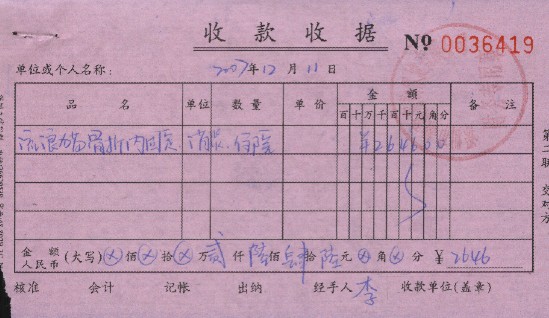 收款收据 № 0036419
单位或个人名称: 2007年12月11日
品名 单位 数量 单价 金额 备注
百十万千百十元角分
流浪 骨折内固定 消炎 住院 ¥264600
金额人民币 (大写) ⊗佰⊗拾⊗万贰仟陆佰肆拾陆元⊗角⊗分 ¥2646
核准 会计 记帐 出纳 经手人 李 收款单位(盖章)
第二联 交对方